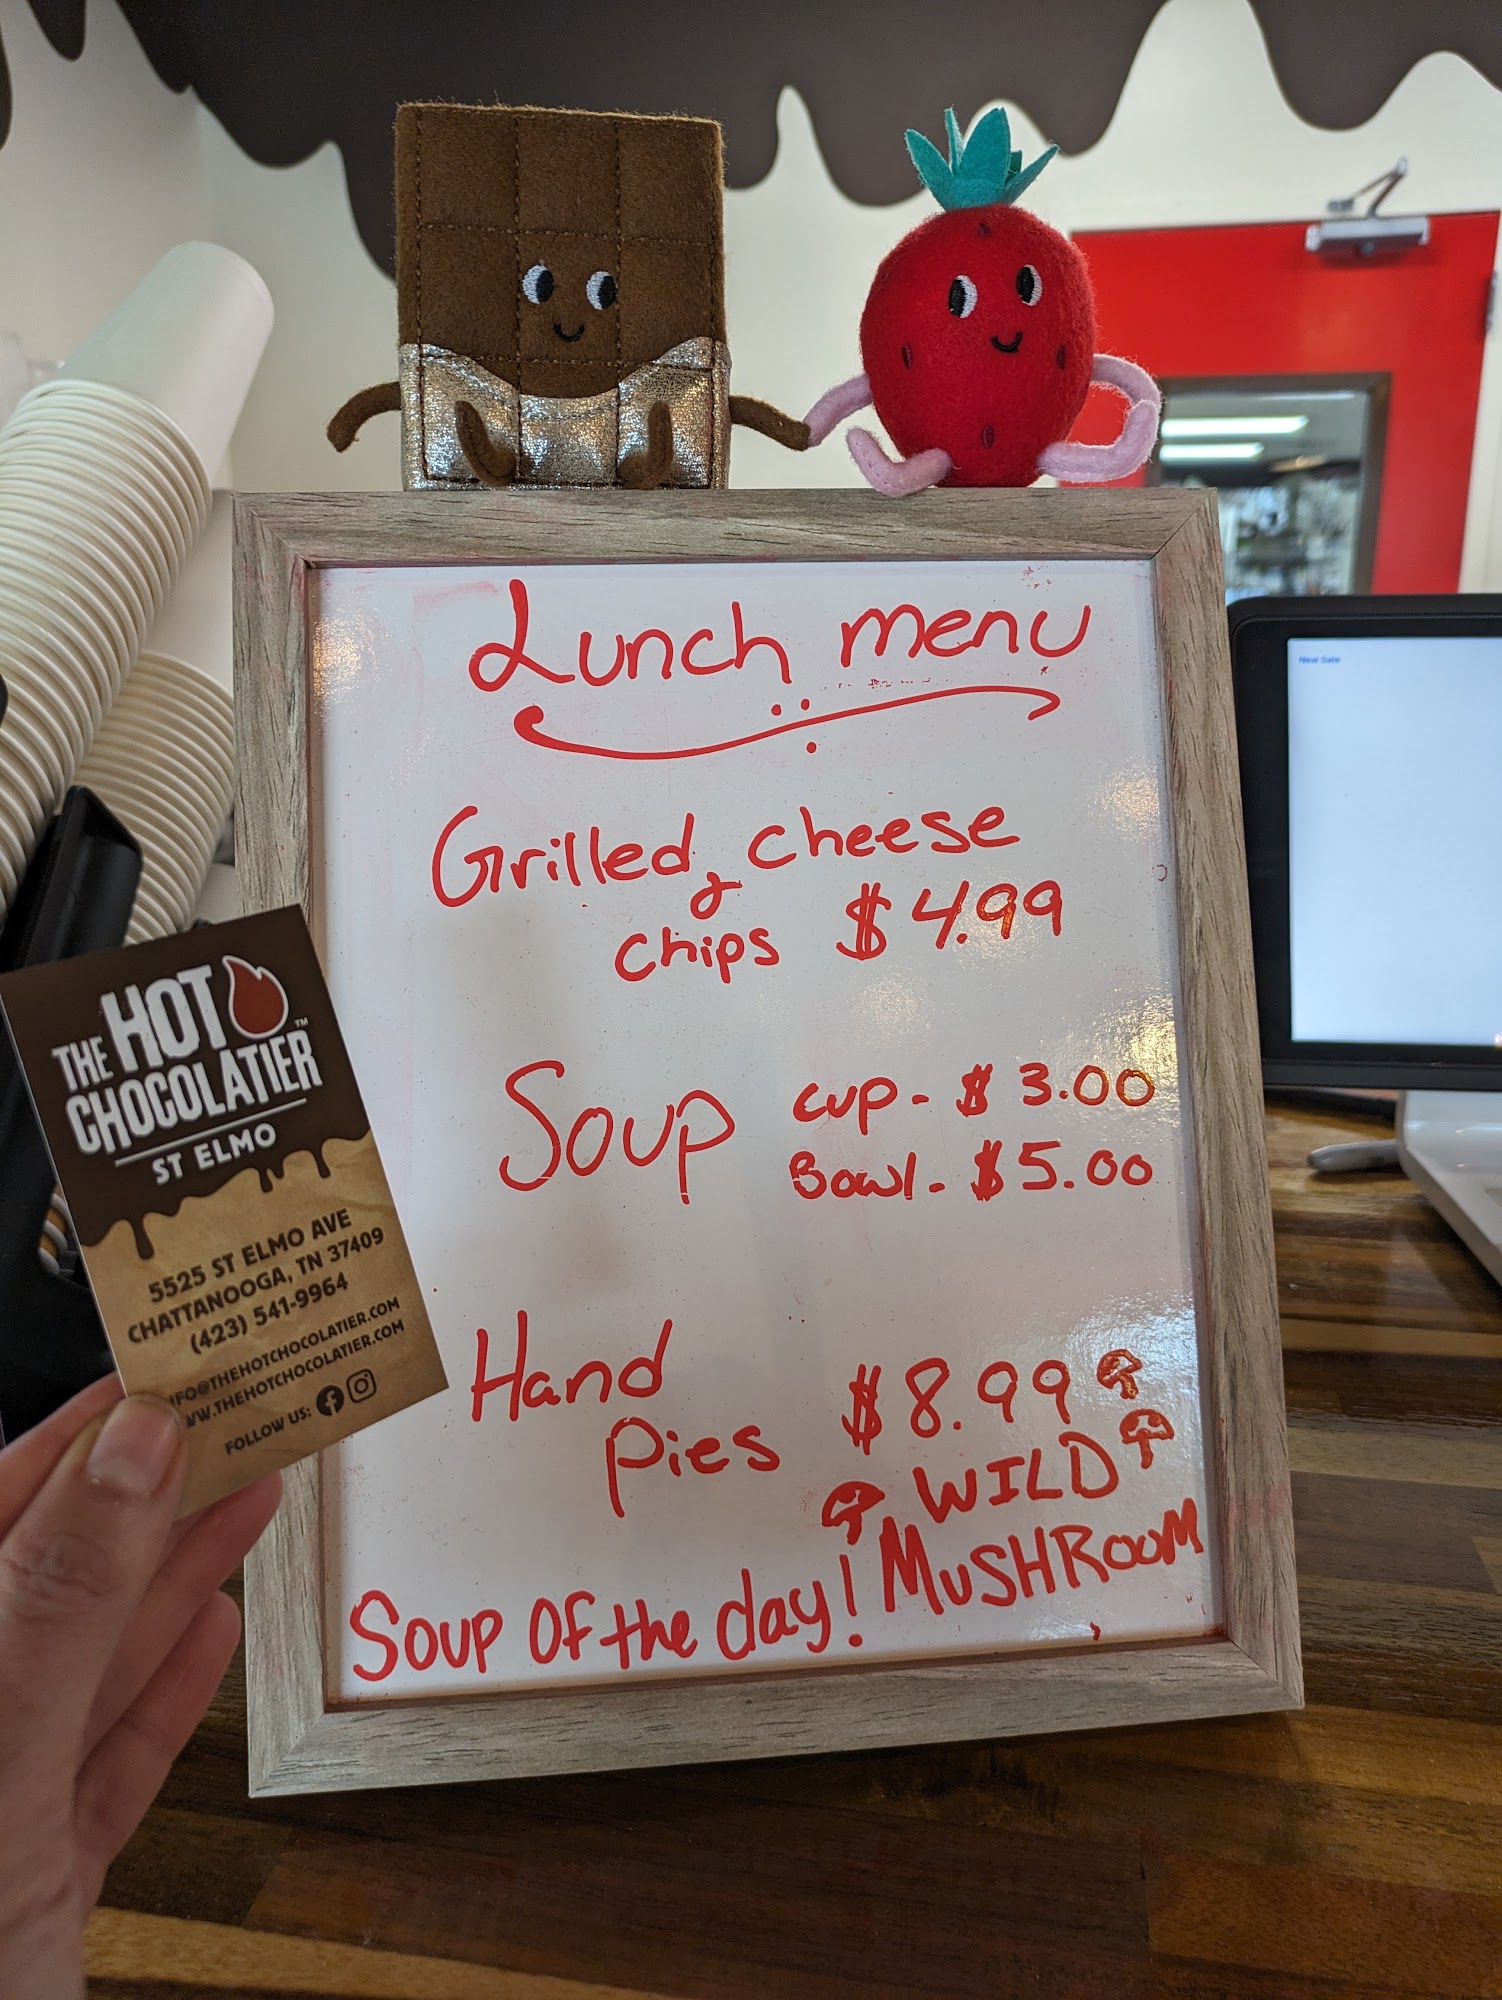 Lunch menu
Grilled cheese
& chips $4.99
Soup cup - $3.00
Bowl - $5.00
Hand
Pies $8.99
WILD
Soup Of the day! MusHRooM
THE HOT
CHOCOLATIER™
ST ELMO
5525 ST ELMO AVE
CHATTANOOGA, TN 37409
(423) 541-9964
NFO@THEHOTCHOCOLATIER.COM
WW.THEHOTCHOCOLATIER.COM
FOLLOW US:
New Sale